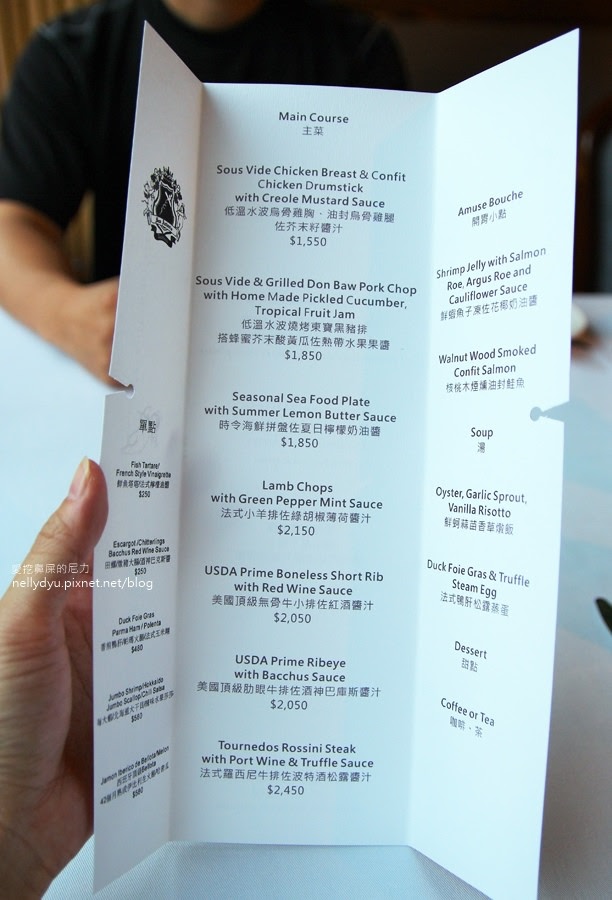 單點
Fish Tartare/
French Style Vinaigrette
$250
Escargot /Chitterlings
Bacchus Red Wine Sauce
$250
Duck Foie Gras
Parma Ham / Polenta
$480
Jumbo Shrimp/Hokkaido
Jumbo Scallop/Chili Salsa
$580
Jamon Iberico de Bellota/Melon
$580
Main Course
主菜
Sous Vide Chicken Breast & Confit
Chicken Drumstick
with Creole Mustard Sauce
低溫水波烏骨雞胸、油封烏骨雞腿
佐芥末籽醬汁
$1,550
Sous Vide & Grilled Don Baw Pork Chop
with Home Made Pickled Cucumber,
Tropical Fruit Jam
低溫水波燒烤東寶黑豬排
搭蜂蜜芥末酸黃瓜佐熱帶水果果醬
$1,850
Seasonal Sea Food Plate
with Summer Lemon Butter Sauce
時令海鮮拼盤佐夏日檸檬奶油醬
$1,850
Lamb Chops
with Green Pepper Mint Sauce
法式小羊排佐綠胡椒薄荷醬汁
$2,150
USDA Prime Boneless Short Rib
with Red Wine Sauce
美國頂級無骨牛小排佐紅酒醬汁
$2,050
USDA Prime Ribeye
with Bacchus Sauce
美國頂級肋眼牛排佐酒神巴庫斯醬汁
$2,050
Tournedos Rossini Steak
with Port Wine & Truffle Sauce
法式羅西尼牛排佐波特酒松露醬汁
$2,450
Amuse Bouche
開胃小點
Shrimp Jelly with Salmon
Roe, Argus Roe and
Cauliflower Sauce
鮮蝦魚子凍佐花椰奶油醬
Walnut Wood Smoked
Confit Salmon
核桃木煙燻油封鮭魚
Soup
湯
Oyster, Garlic Sprout,
Vanilla Risotto
鮮蚵蒜苗香草燉飯
Duck Foie Gras & Truffle
Steam Egg
法式鴨肝松露蒸蛋
Dessert
甜點
Coffee or Tea
咖啡、茶
愛挖鼻屎的尼力
nellydyu.pixnet.net/blog